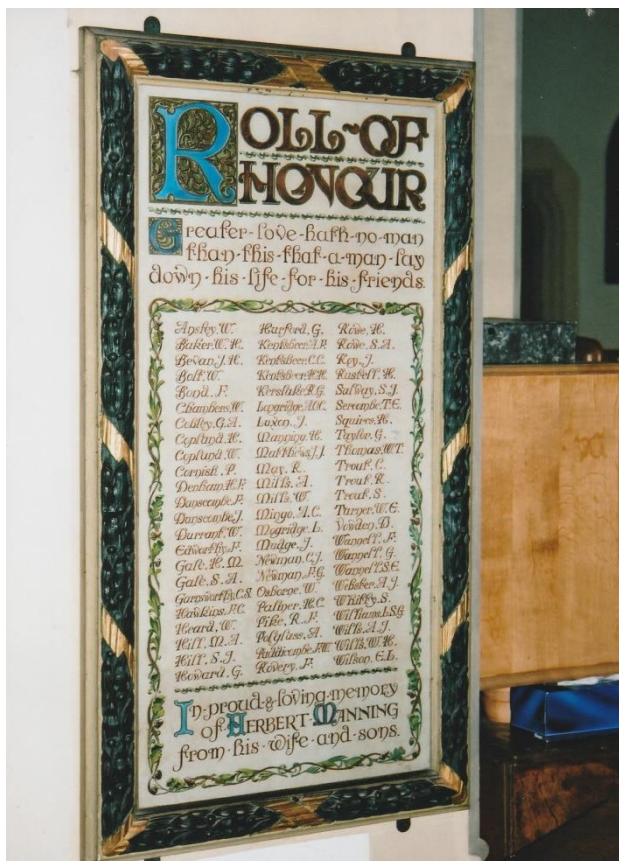 ROLL~OF
HONOUR
Greater-love-hath-no-man
than-this-that-a-man-lay
down-his-life-for-his-friends.
Anstey, W.
Baker, W. H.
Bevan, J. H.
Bolt, W.
Bond, F.
Chambers, W.
Cobley, G. A.
Copland, H.
Copland, W.
Cornish, P.
Denham, H. F.
Danscombe, F.
Danscombe, J.
Durrant, W.
Edworthy, F.
Gale, H. M.
Gale, S. A.
Garnsworthy, C. S.
Hawkins, F. C.
Heard, W.
Hill, M. A.
Hill, S. J.
Howard, G.
Harford, G.
Kentisbeer, A. P.
Kentisbeer, C. C.
Kentisbeer, H. H.
Kerslake, R. G.
Langridge, A. W. C.
Luxon, J.
Manning, H.
Matthews, J. J.
May, R.
Mills, A.
Mills, W.
Mingo, A. C.
Mogridge, L.
Mudge, J.
Newman, C. J.
Newman, F. G.
Osborne, W.
Palmer, H. C.
Pike, R. F.
Polglass, A.
Puddicombe, F. W.
Rovery, F.
Rowe, H.
Rowe, S. A.
Roy, J.
Rustell, H.
Salway, S. J.
Sercombe, T. E.
Squires, H.
Taylor, G.
Thomas, W. T.
Trout, C.
Trout, R.
Trout, S.
Turner, W. E.
Vowden, D.
Wannell, F.
Wannell, G.
Wannell, S. E.
Webster, A. J.
Whitby, S.
Williams, L. S. G.
Wills, A. J.
Wills, W. H.
Wilson, E. L.
In-proud-&-loving-memory
of HERBERT-MANNING
from-his-wife-and-sons.